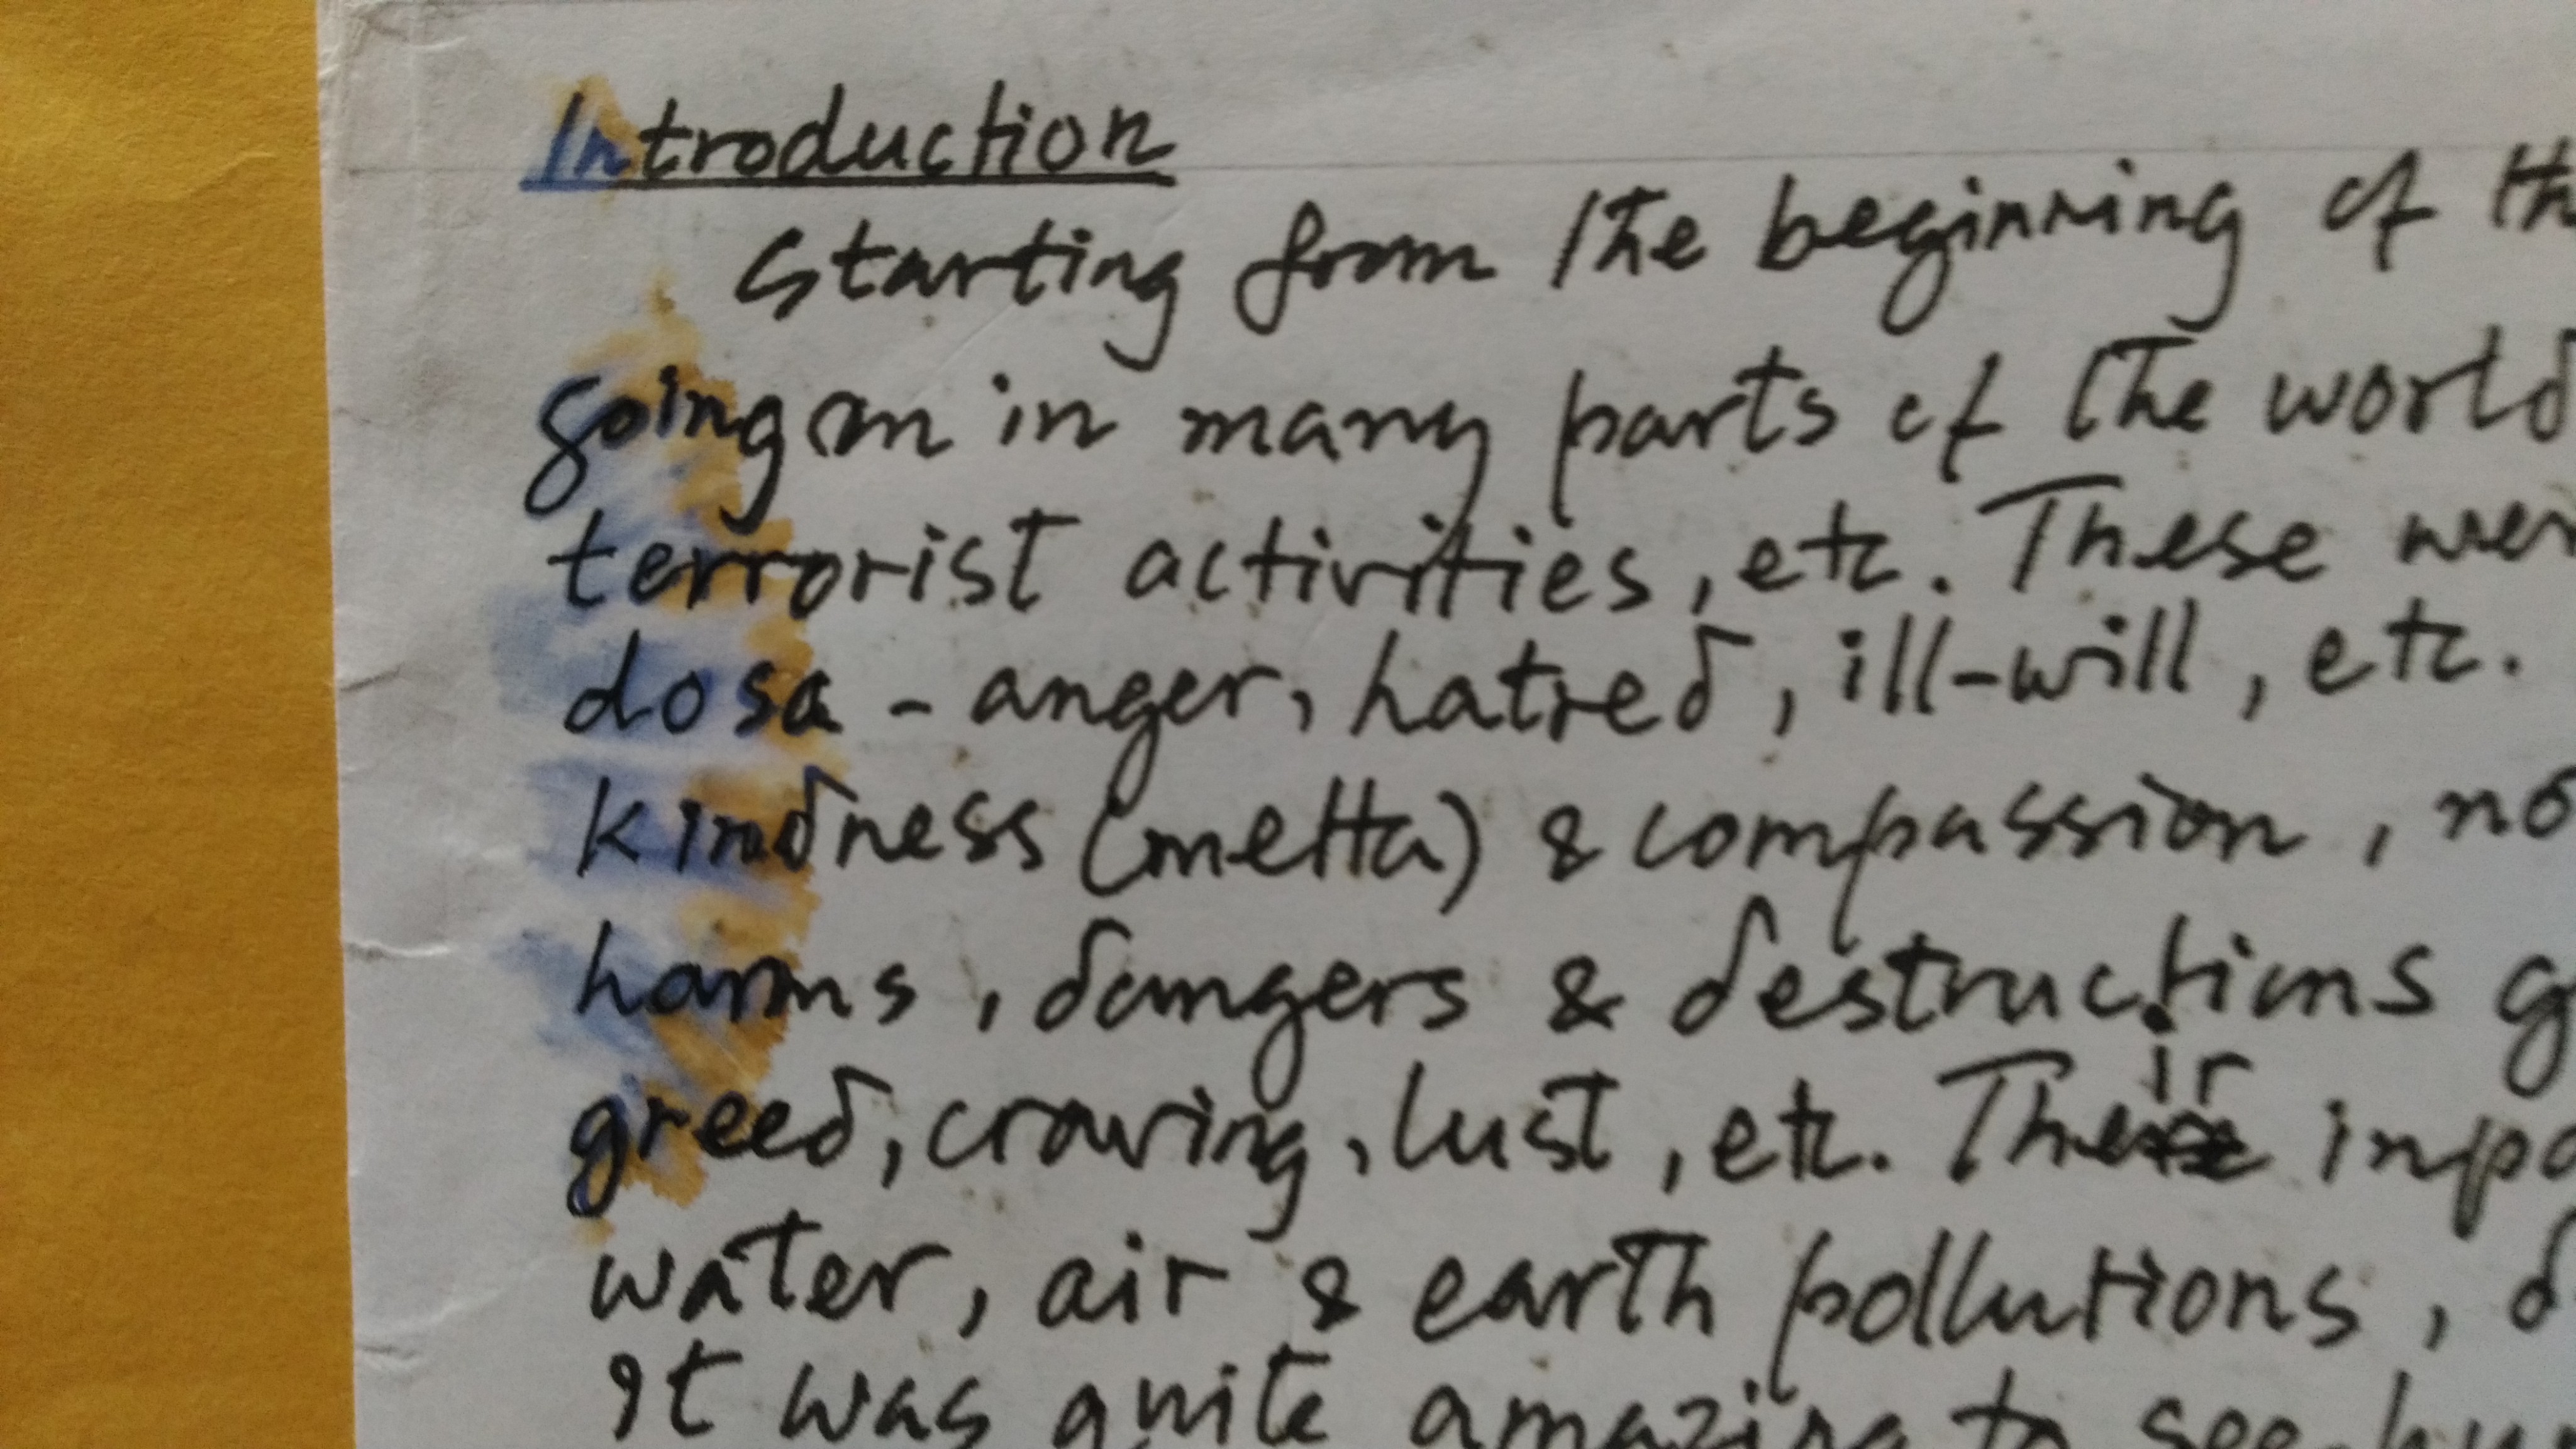 Introduction
Starting from the beginning of th
going on in many parts of the world
terrorist activities, etc. These wer
dosa - anger, hatred, ill-will, etc.
kindness (metta) & compassion, no
harms, dangers & destructions g
greed, craving, lust, etc. Their inpo
water, air & earth pollutions, d
It was quite amazing to see hu